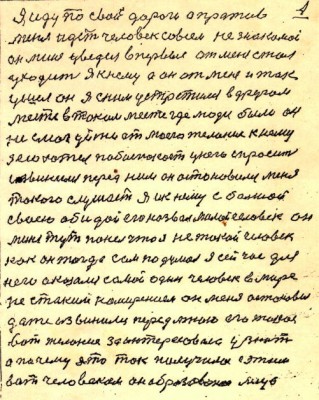 1
Я иду по свой дороги а против
меня идет человек совсем не знакомой
он мине увидел впервыя от меня стал
уходит я к нему а он от мене и так
ушел он я с ним устретился в другом
месте в таком месте где люди было он
не смог уйти от моего желание к нему
захотел поближе от у него спросит
извинился перед ним он астоновил меня
такого слушает я ик нему с балной
своею обидой его назвал милой человек он
мине тут понел что я не такой человек
как он тогда сам подумал я сей час для
него оказался самой один человек в мире
не с таким намерением он меня астоновил
даже извинилса передо мною его такое
вот желание заинтересовала узнат
а почему это так получилас с этим
вот человеком он образовано лицо